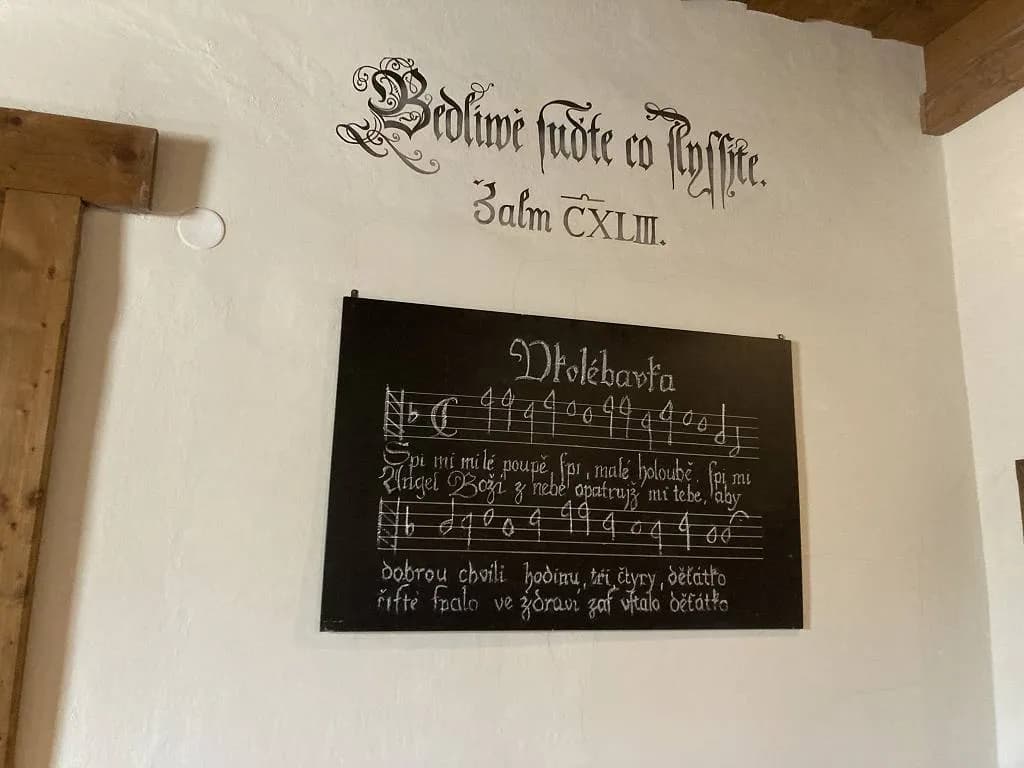 Bedliwě suďte co slyssjte.
Žalm CXLIII.
Vkolébavka
Spi mi milé poupě, spi, malé holoubě, spi mi
Angel Boží z nebe opatrujž mi tebe, aby
dobrou chvíli hodinu, tři čtyry, děťátko
čisté spalo ve zdraví zas vstalo děťátko